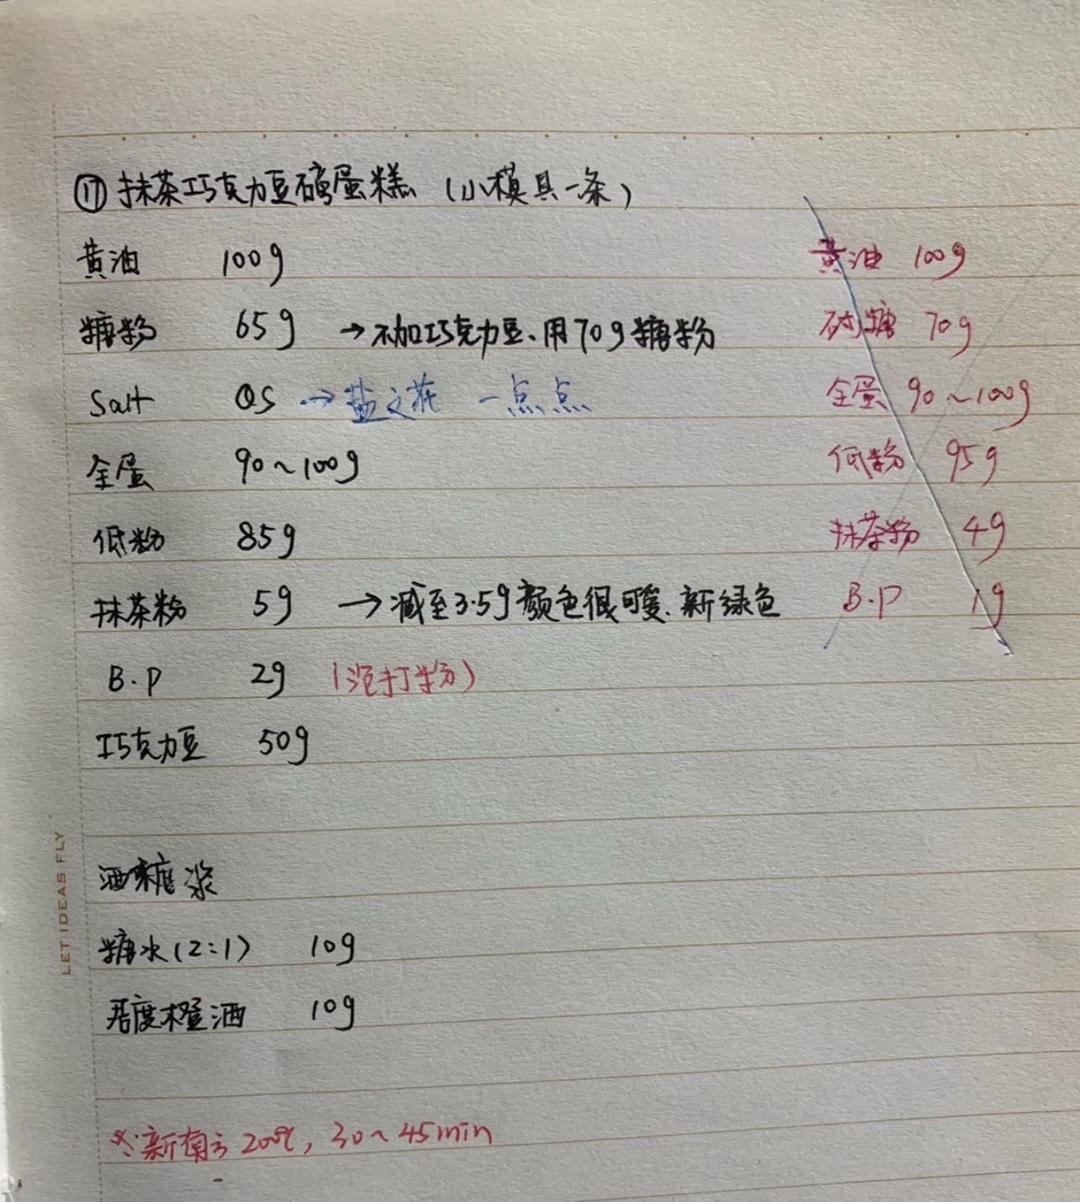 ⑰ 抹茶巧克力豆磅蛋糕 (小模具一条)
黄油 100g
糖粉 65g → 不加巧克力豆、用70g糖粉
Salt QS → 盐之花 一点点
全蛋 90~100g
低粉 85g
抹茶粉 5g → 减至3.5g颜色很可爱、新绿色
B.P 2g (泡打粉)
巧克力豆 50g
黄油 100g
砂糖 70g
全蛋 90~100g
低粉 95g
抹茶粉 4g
B.P 1g
酒糖浆
糖水(2:1) 10g
君度橙酒 10g
※新南方 200℃, 30~45min
LET IDEAS FLY